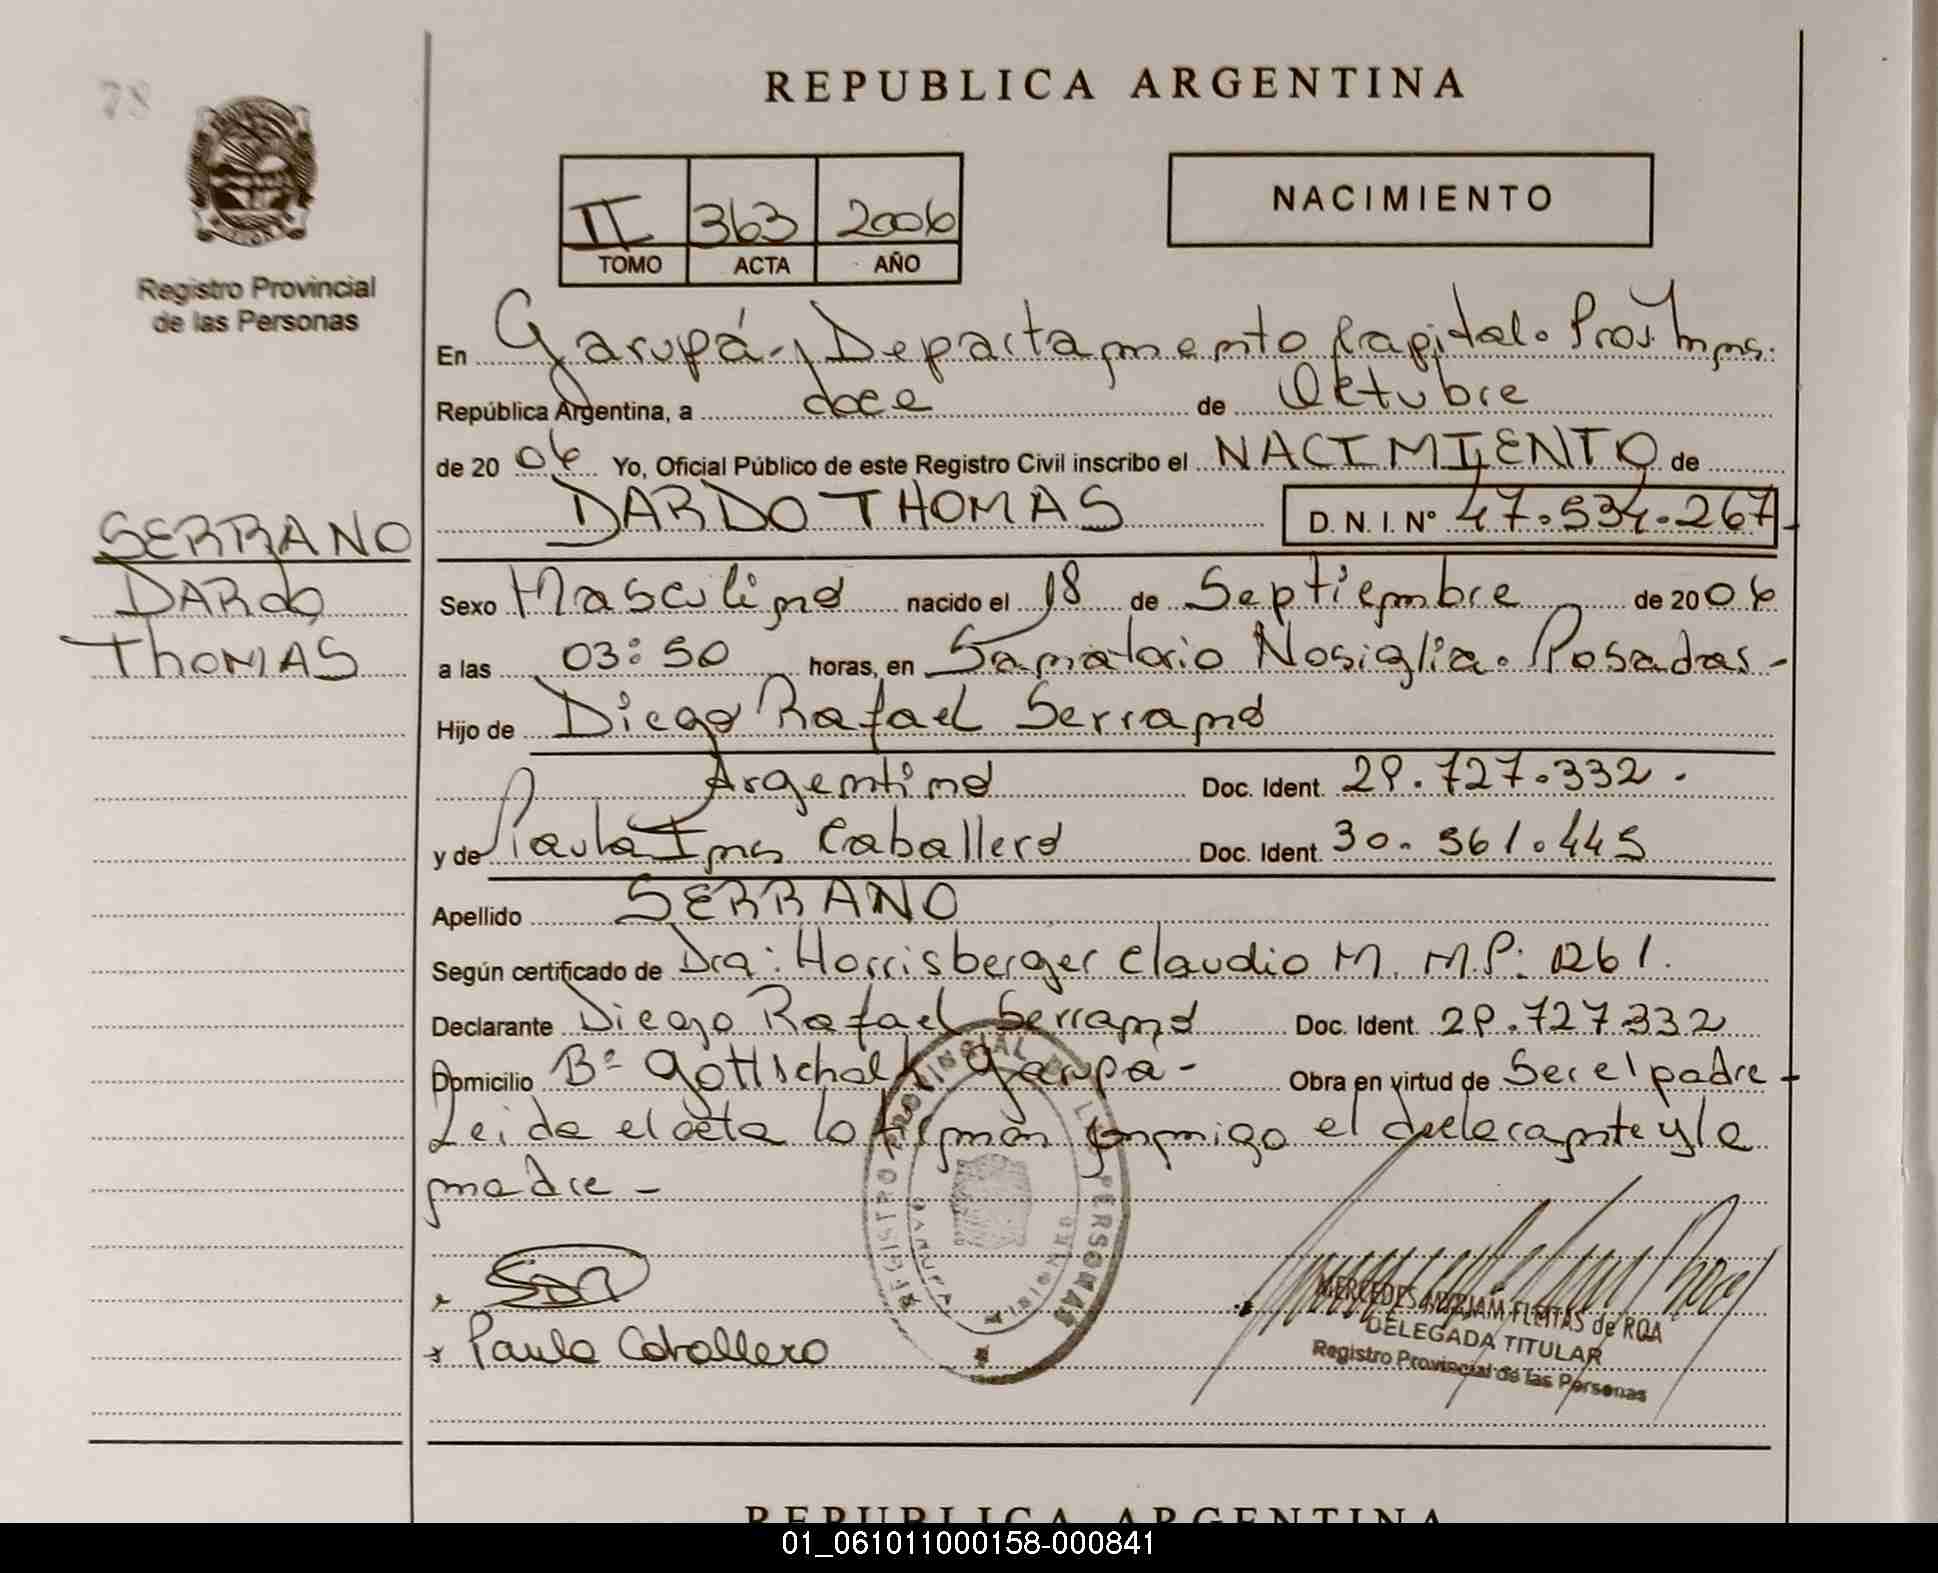 78
REPUBLICA ARGENTINA
II 363 2006
TOMO ACTA AÑO
NACIMIENTO
Registro Provincial
de las Personas
En Garupá - Departamento Capital. Prov. Mns.
República Argentina, a doce de Octubre
de 2006 Yo, Oficial Público de este Registro Civil inscribo el NACIMIENTO de
DARDO THOMAS D. N. I. Nº 47.534.267
SERRANO
DARdo
ThOMAS
Sexo Masculino nacido el 18 de Septiembre de 2006
a las 03:50 horas, en Sanatorio Nosiglia. Posadas -
Hijo de Diego Rafael Serrano
Argentino Doc. Ident. 29.727.332.
y de Paula Ines Caballero Doc. Ident. 30.561.445
Apellido SERRANO
Según certificado de Dra: Horrisberger Claudio M. M.P: 1261.
Declarante Diego Rafael Serrano Doc. Ident. 29.727332
Domicilio Bº Gottschalk Garupá - Obra en virtud de Ser el padre -
Leida el acta lo firman conmigo el declarante y la
madre -
REGISTRO PROVINCIAL DE LAS PERSONAS
GARUPA MISIONES
Paula Caballero
MERCEDES MIRIAM FLEITAS de ROA
DELEGADA TITULAR
Registro Provincial de las Personas
REPUBLICA ARGENTINA
01_061011000158-000841